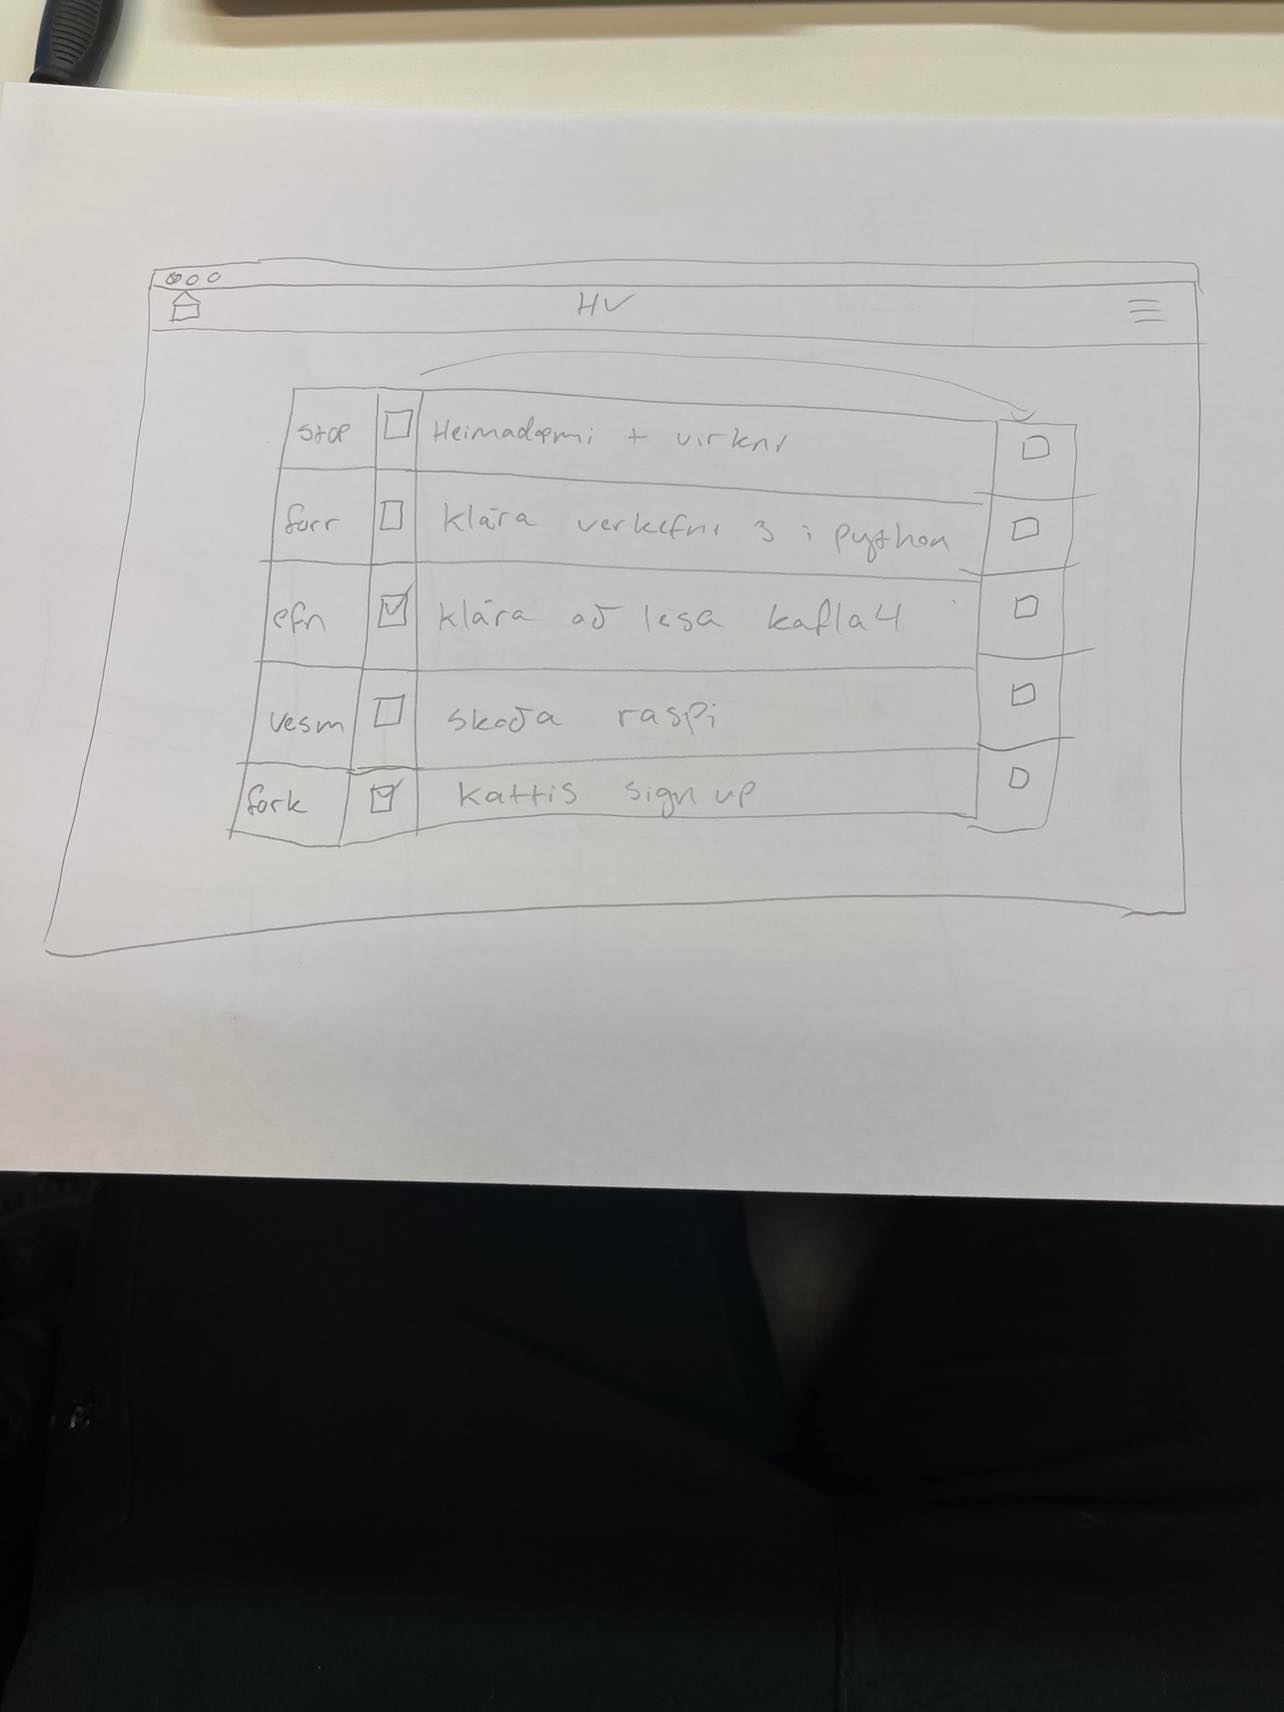 HV
stæ Heimadæmi + virkni
forr klára verkefni 3 i python
efn klára að lesa kafla 4
vesm skoða raspi
fork kattis sign up